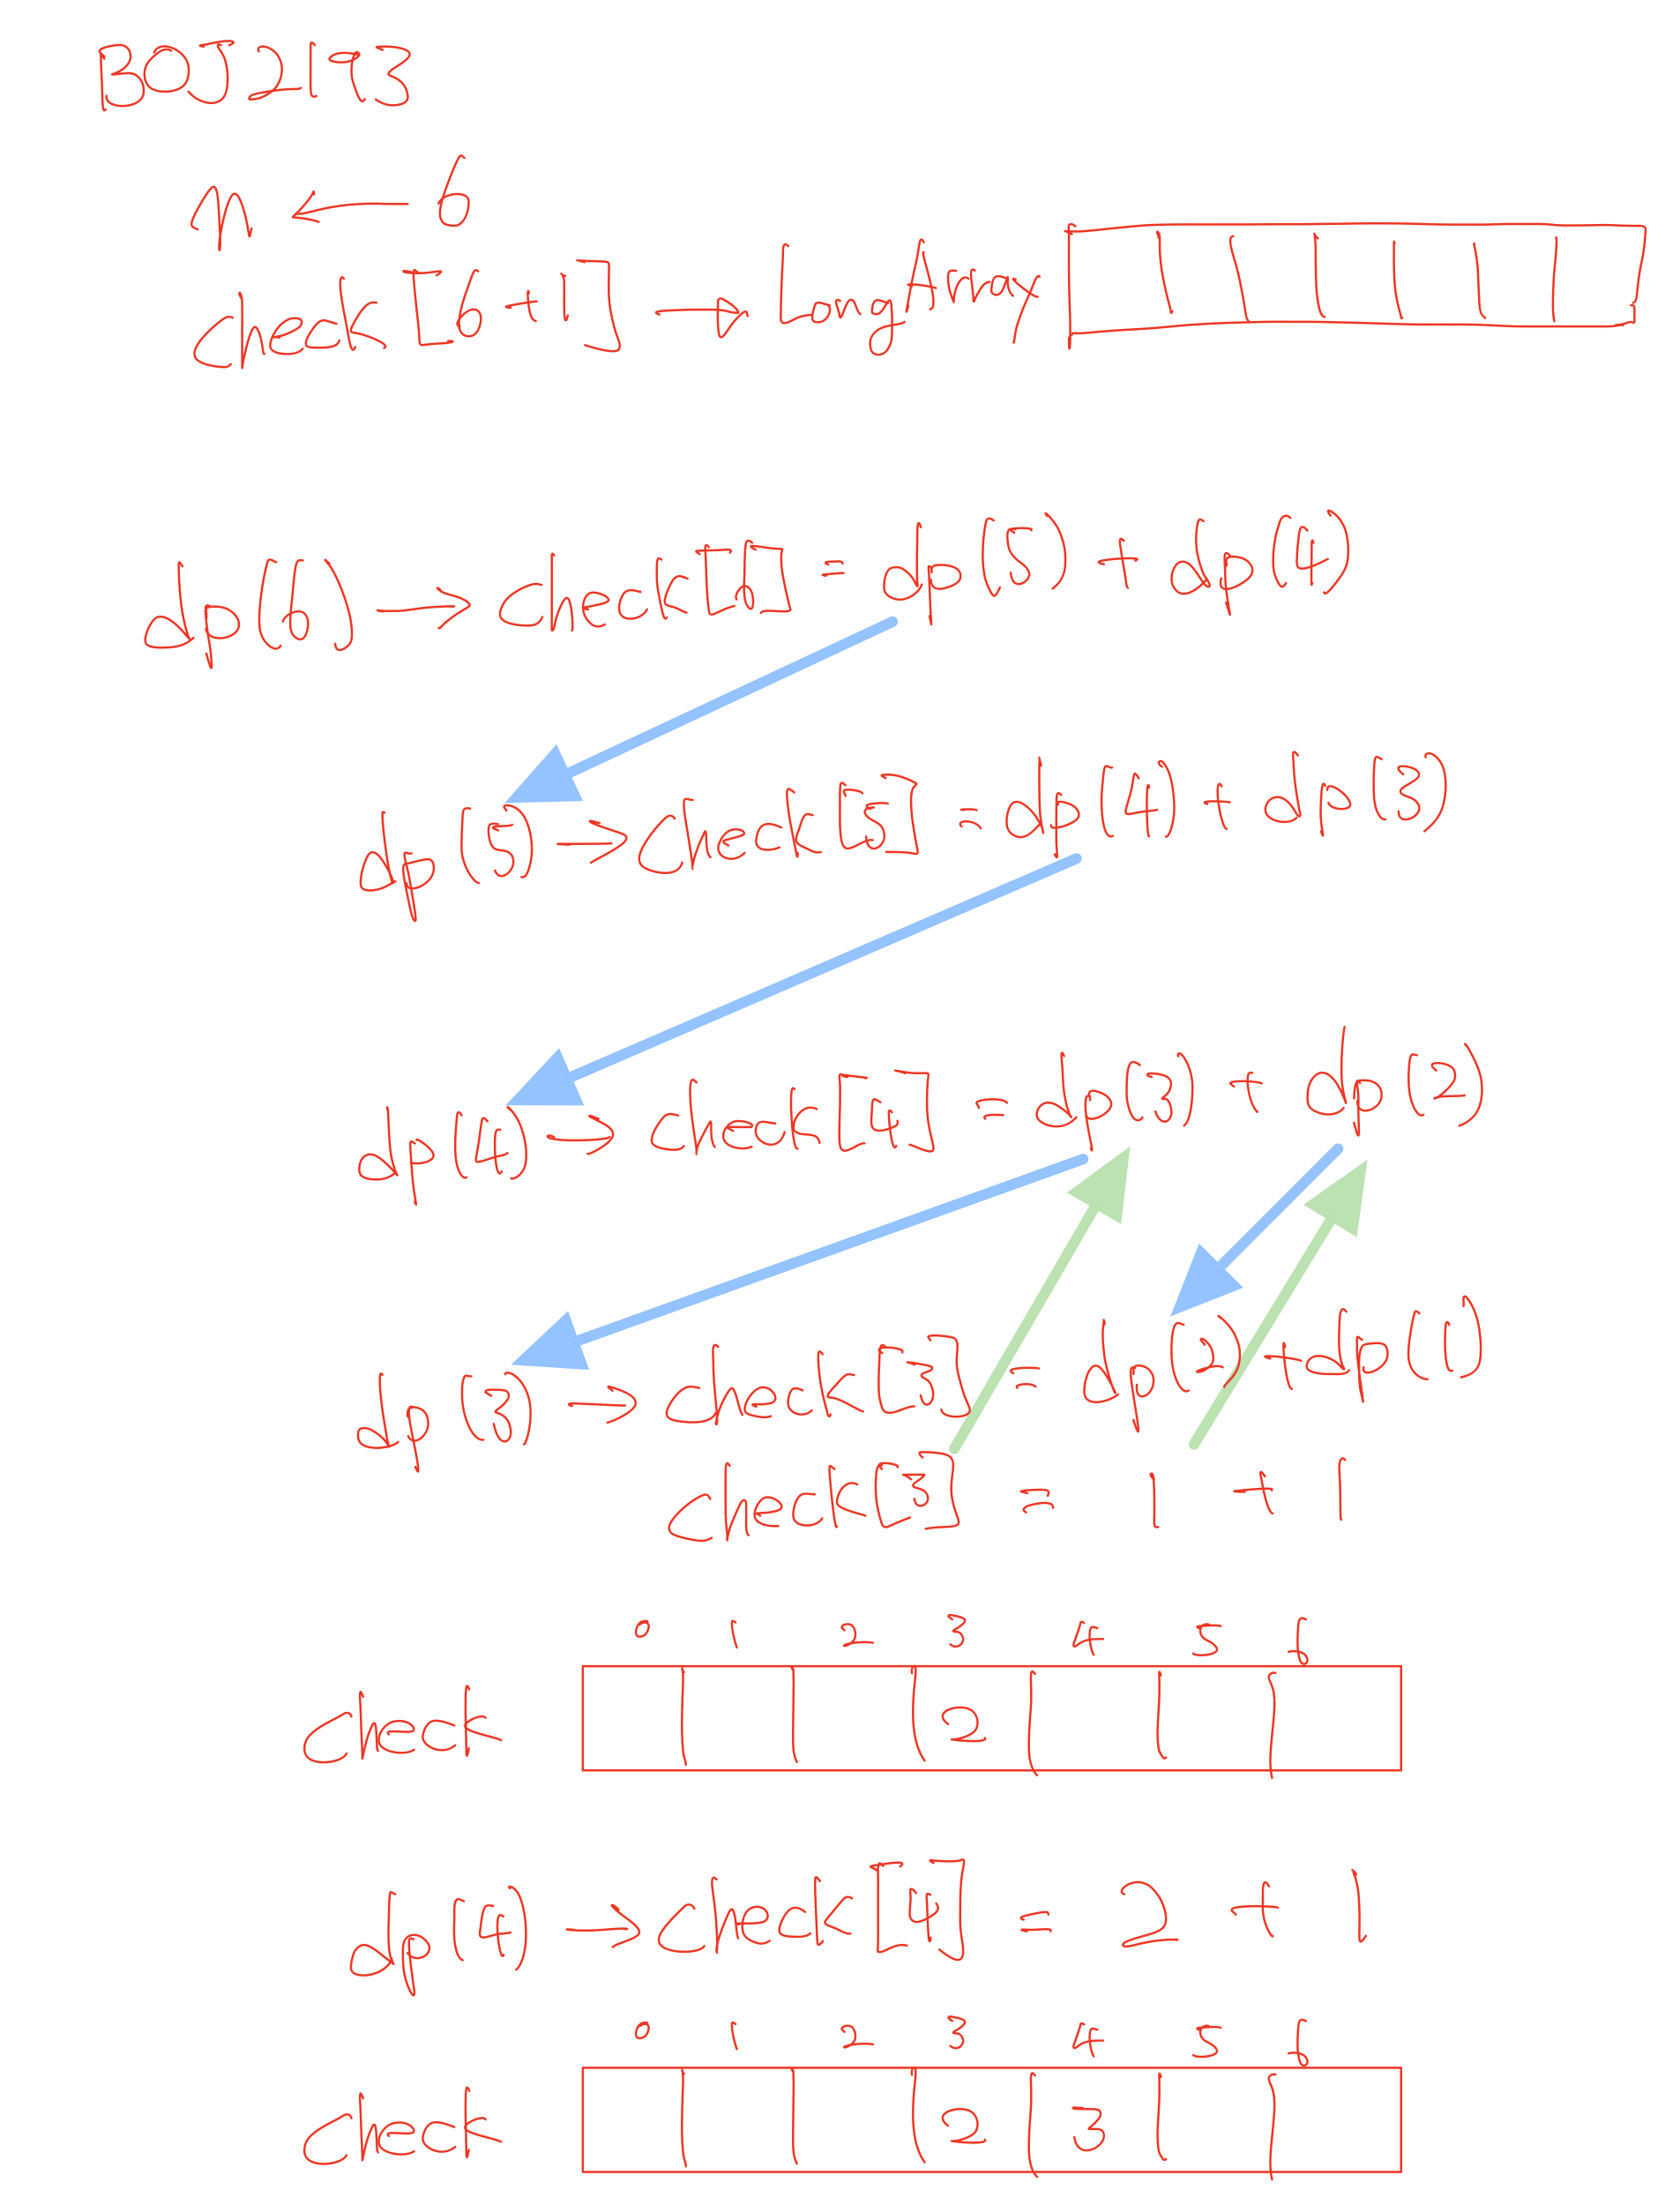 BOJ2193
n ← 6
check[6+1] → LongArray
dp(6) → check[6] = dp(5) + dp(4)
dp(5) → check[5] = dp(4) + dp(3)
dp(4) → check[4] = dp(3) + dp(2)
dp(3) → check[3] = dp(2) + dp(1)
check[3] = 1 + 1
0 1 2 3 4 5 6
check 2
dp(4) → check[4] = 2 + 1
0 1 2 3 4 5 6
check 2 3